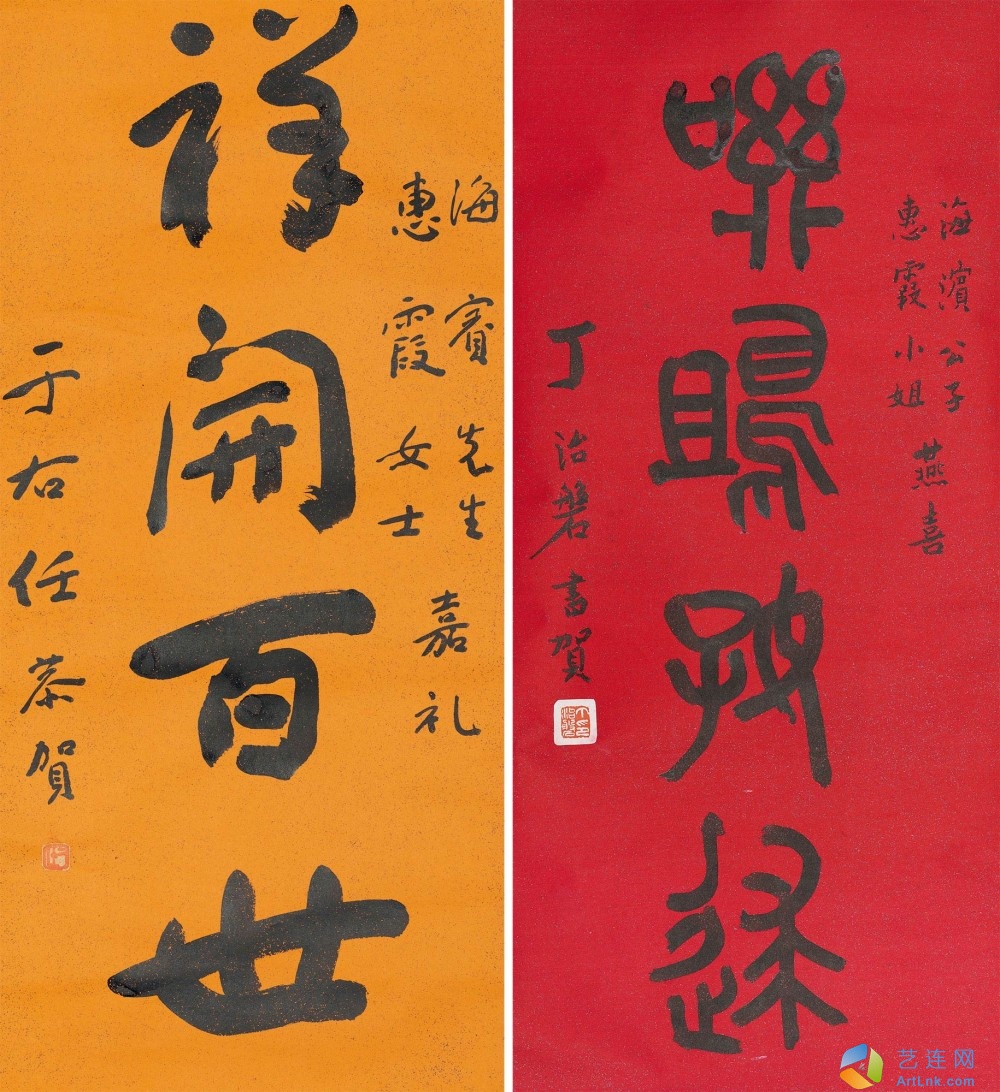 海濱公子
惠霞小姐
燕喜
鴡好逑
丁治磐書賀
海賓先生
惠霞女士
嘉礼
祥開百世
于右任恭賀
艺连网
ArtLnk.com